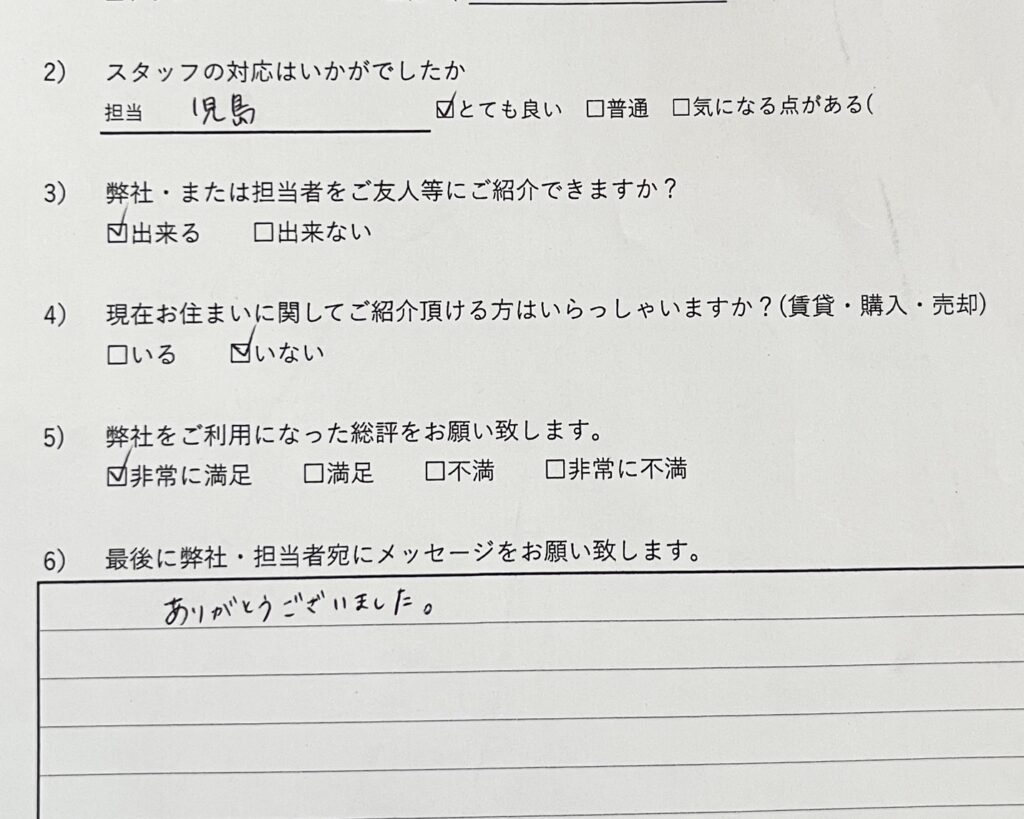 2) スタッフの対応はいかがでしたか
担当 児島 ☑とても良い □普通 □気になる点がある(
3) 弊社・または担当者をご友人等にご紹介できますか？
☑出来る □出来ない
4) 現在お住まいに関してご紹介頂ける方はいらっしゃいますか？(賃貸・購入・売却)
□いる ☑いない
5) 弊社をご利用になった総評をお願い致します。
☑非常に満足 □満足 □不満 □非常に不満
6) 最後に弊社・担当者宛にメッセージをお願い致します。
ありがとうございました。